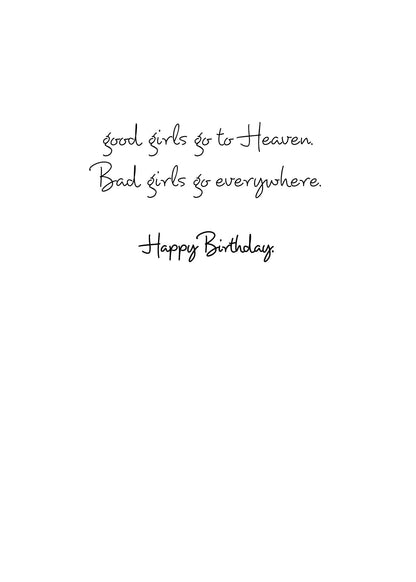 good girls go to Heaven.
Bad girls go everywhere.
Happy Birthday.